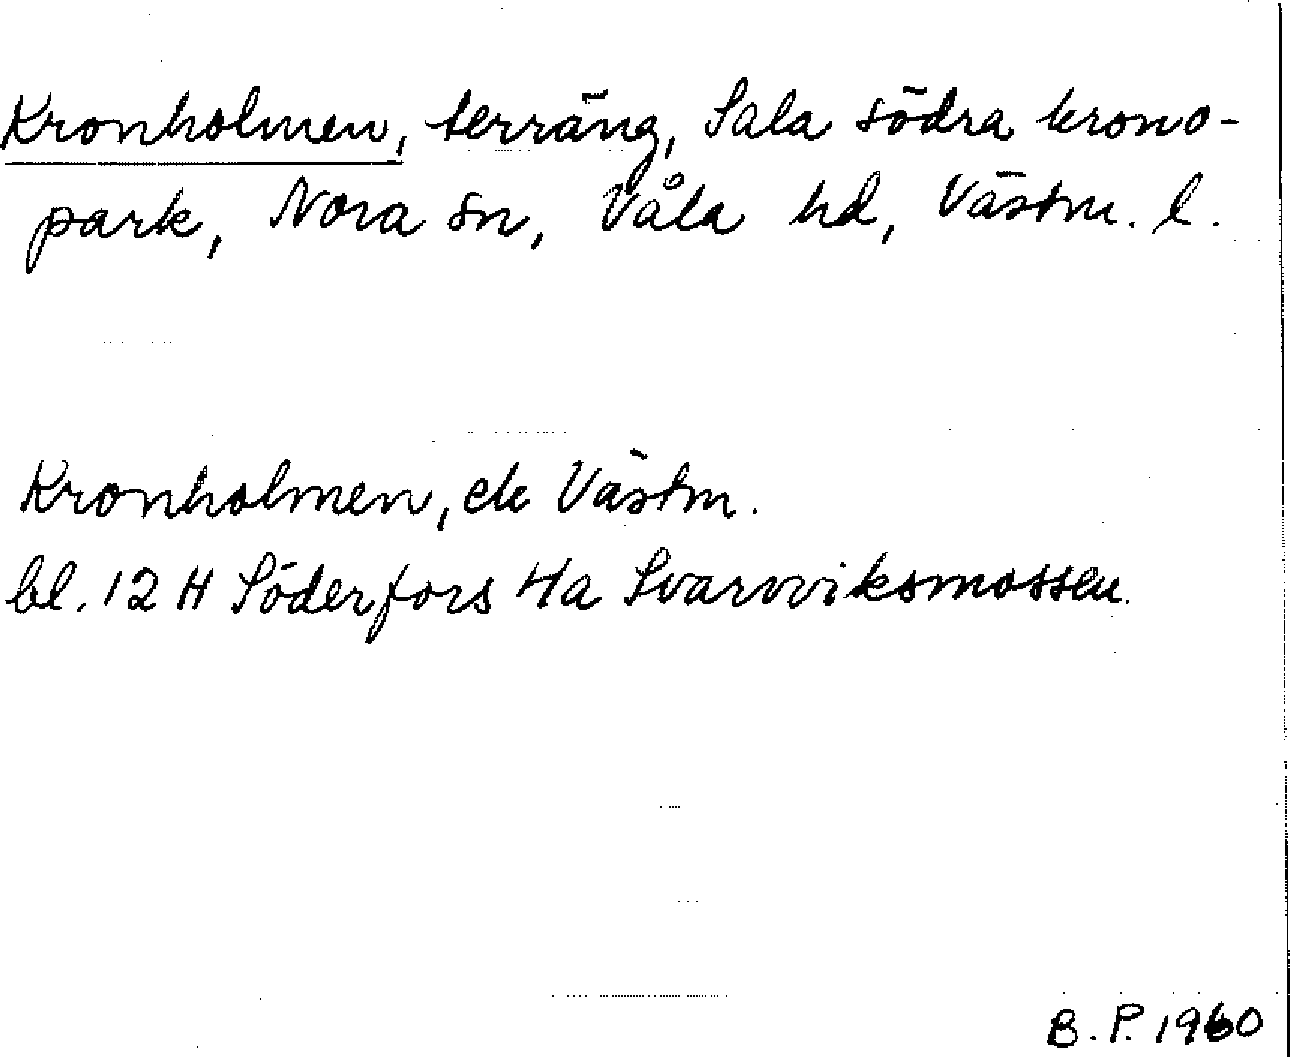 Kronholmen, terräng, Sala södra krono-
park, Nora sn, Våla hd, Västm. l.
Kronholmen, ek Västm.
bl. 12 H Söderfors 4a Svarvviksmossen.
B. P. 1960